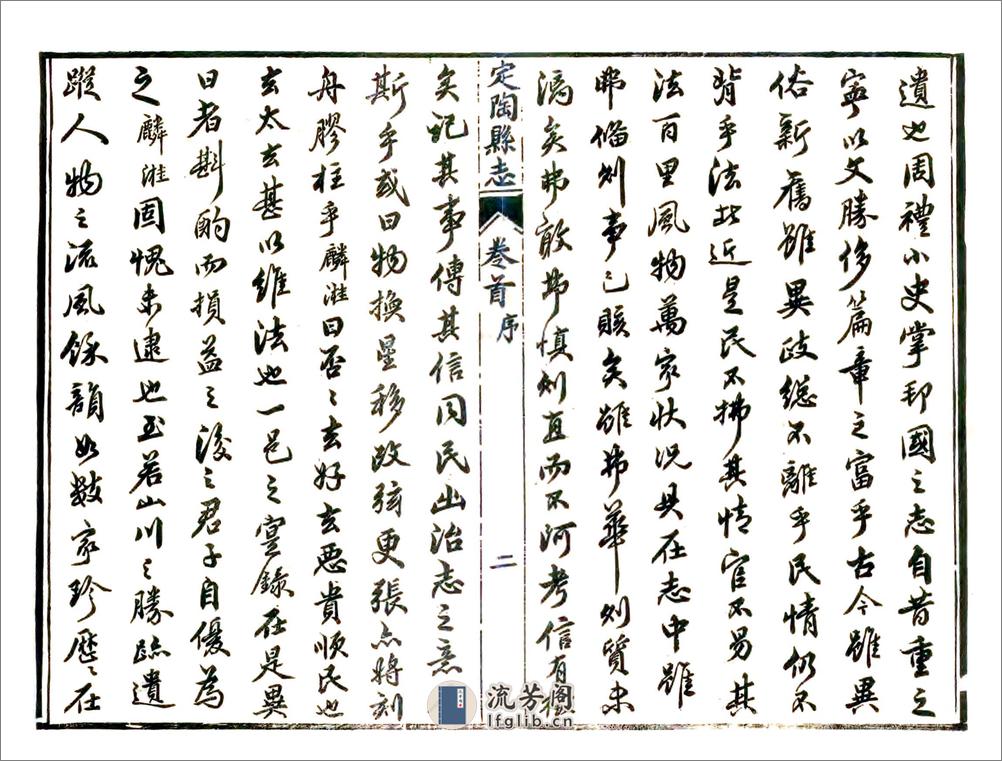 遺也周禮小史掌邦國之志自昔重之
寧以文勝侈篇章之富乎古今雖異
俗新舊雖異政總不離乎民情仍不
背乎法此近是民不拂其情官不易其
法百里風物萬家狀況具在志中雖
弗備則事已賅矣雖弗華則質未
漓矣弗敢弗慎則直而不河考信有
定陶縣志
卷首
序
二
矣記其事傳其信同民出治志之意
斯乎或曰物換星移改弦更張亦將刻
舟膠柱乎麟洼曰否否去好去惡貴順民也
去太去甚以維法也一邑之實錄在是異
日者斟酌而損益之後之君子自優為
之麟洼固愧未逮也至若山川之勝蹟遺
蹤人物之流風餘韻如數家珍歷歷在
流芳阁
lfglib.cn